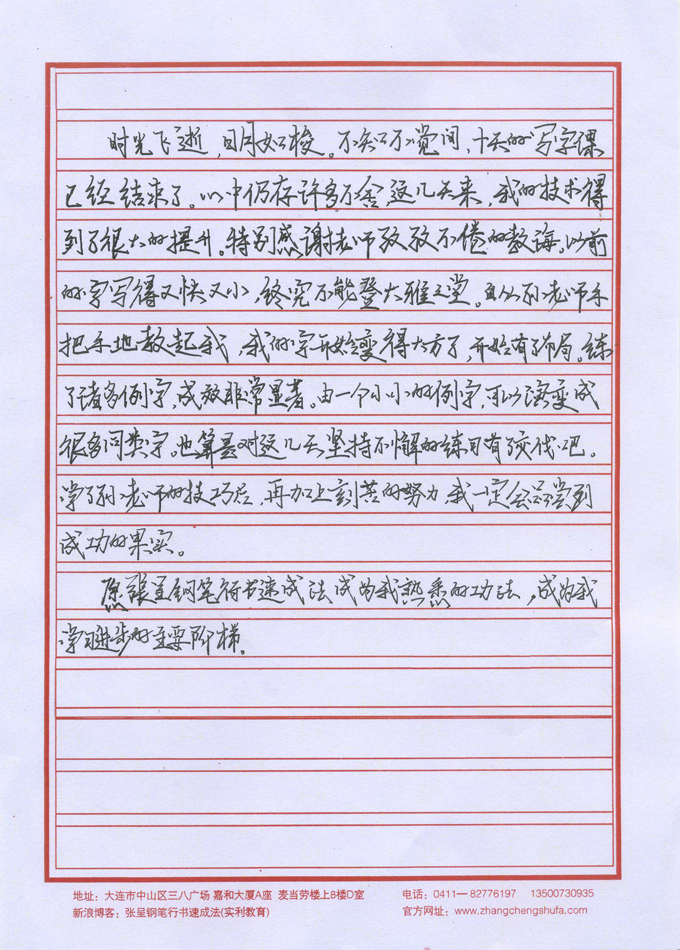 时光飞逝，日月如梭。不知不觉间，十天的写字课
已经结束了。心中仍存许多不舍，这几天来，我的技术得
到了很大的提升。特别感谢老师孜孜不倦的教诲。以前
的字写得又快又小，终究不能登大雅之堂。自从孙老师手
把手地教起我，我的字开始变得大方了，开始有了布局。练
了诸多例字，成效非常显著。由一个小小的例字，可以演变成
很多同类字。也算是对这几天坚持不懈的练习有交代吧。
学了孙老师的技巧后，再加上刻苦的努力，我一定会品尝到
成功的果实。
愿张呈钢笔行书速成法成为我熟悉的功法，成为我
学习进步的主要阶梯。
地址：大连市中山区三八广场 嘉和大厦A座 麦当劳楼上8楼D室 电话：0411—82776197 13500730935
新浪博客：张呈钢笔行书速成法(实利教育) 官方网址：www.zhangchengshufa.com